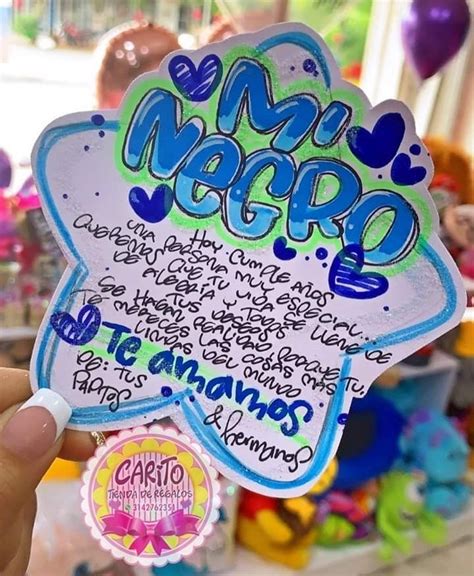 Mi
Negro
Hoy cumple años
una persona muy especial...
Queremos que tu vida se llene de
alegría y todos
tus deseos
se hagan realidad, porque tu,
te mereces las cosas más
lindas del mundo
Te amamos
De: Tus
Papitos
& hermanos
CARITO
TIENDA DE REGALOS